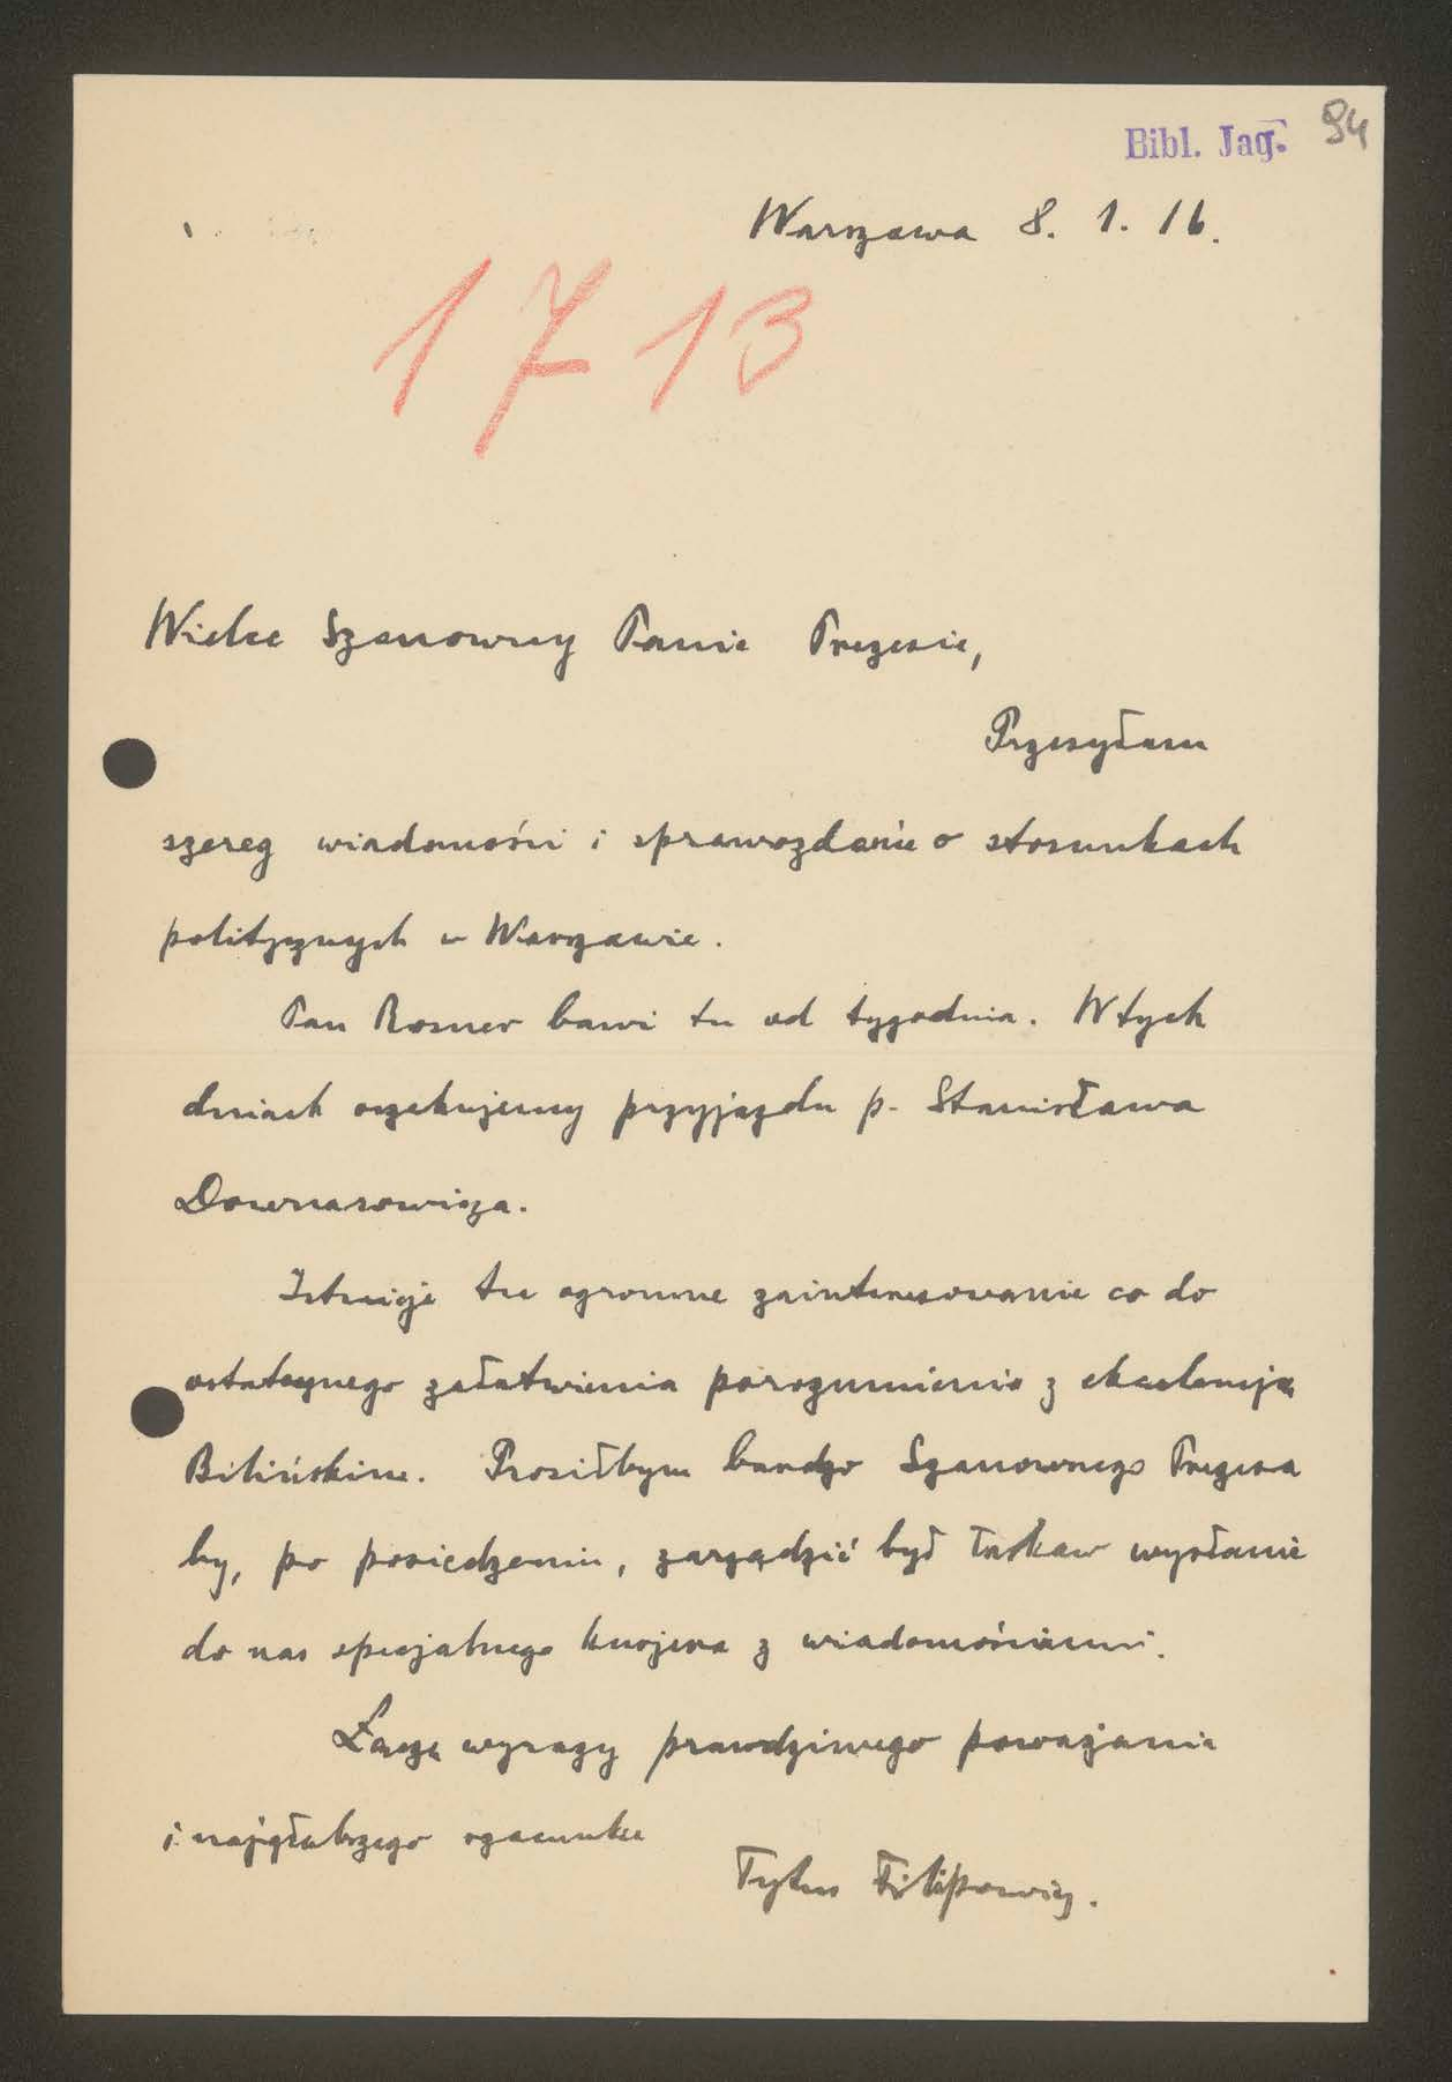 Bibl. Jag. 94
Warszawa 8. 1. 16.
1713
Wielce Szanowny Panie Prezesie,
Przesyłam
szereg wiadomości i sprawozdanie o stosunkach
politycznych w Warszawie.
Pan Rosner bawi tu od tygodnia. W tych
dniach oczekujemy przyjazdu p. Stanisława
Downarowicza.
Istnieje tu ogromne zainteresowanie co do
ostatecznego załatwienia porozumienia z ekscelencją
Bilińskim. Prosiłbym bardzo Szanownego Prezesa
by, po posiedzeniu, zarządzić był łaskaw wysłanie
do nas specjalnego kurjera z wiadomościami.
Łączę wyrazy prawdziwego poważania
i najgłębszego szacunku
Tytus Filipowicz.